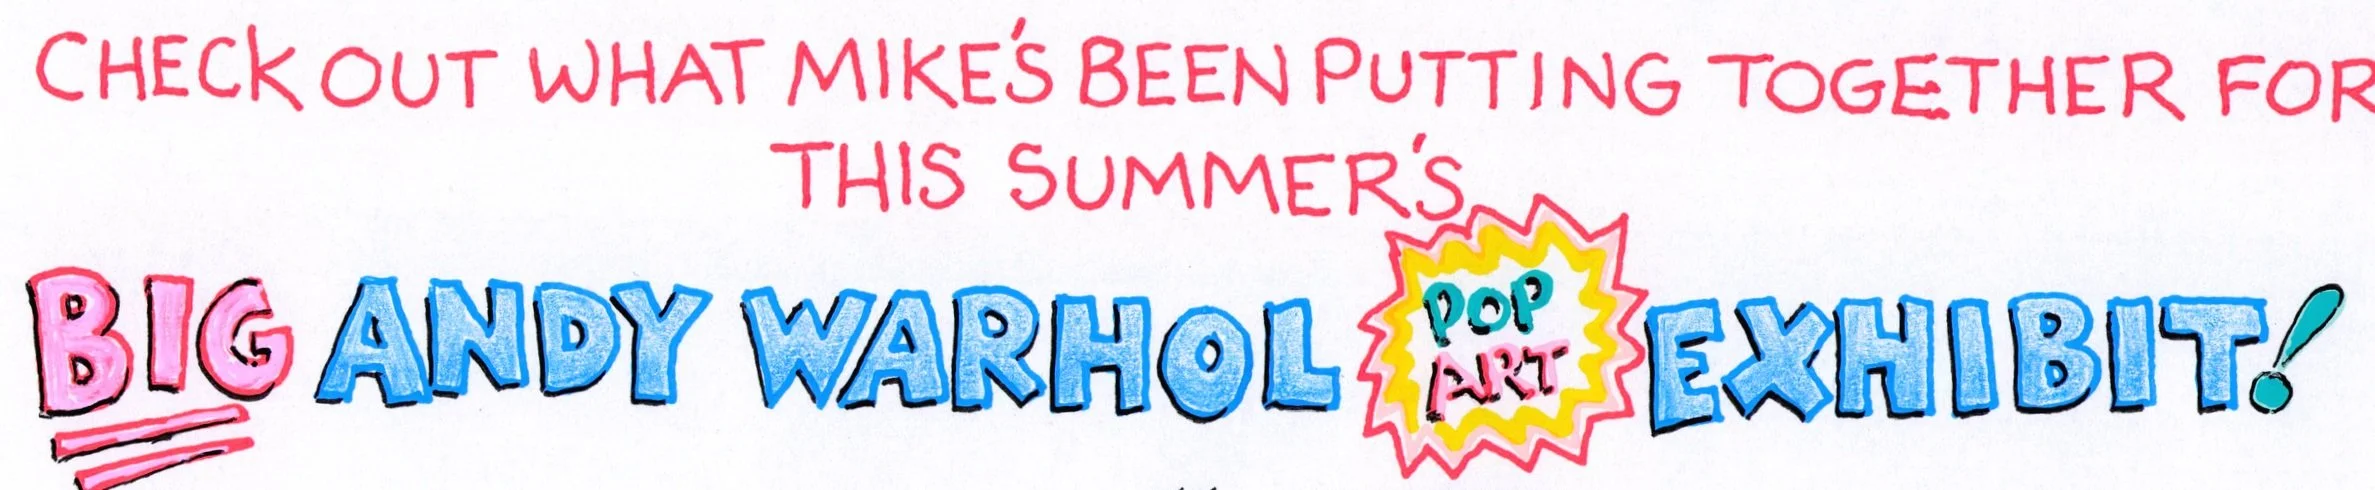 CHECK OUT WHAT MIKE'S BEEN PUTTING TOGETHER FOR
THIS SUMMER'S
BIG ANDY WARHOL POP ART EXHIBIT!